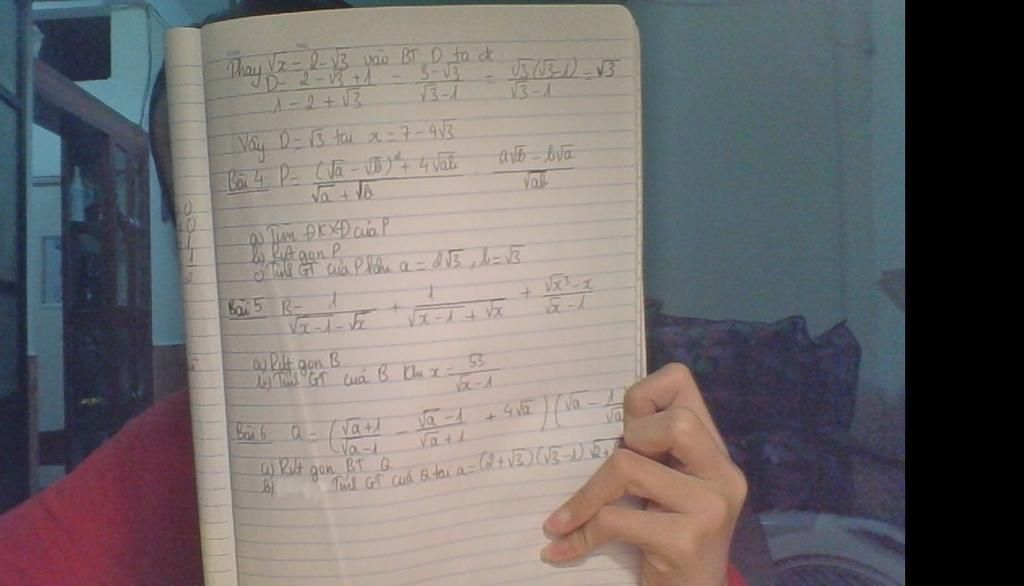 Thay √x = 2-√3 vào BT D ta đc
D = (2-√3+1)/(1-2+√3) = (3-√3)/(√3-1) = (√3(√3-1))/(√3-1) = √3
Vậy D = √3 tại x = 7-4√3
Bài 4 P = ((√a-√b)²+4√ab)/(√a+√b) · (a√b-b√a)/√ab
a) Tìm ĐKXĐ của P
b) Rút gọn P
c) Tính GT của P khi a = 2√3, b = √3
Bài 5 B = 1/(√x-1-√x) + 1/(√x-1+√x) + (√x³-x)/(√x-1)
a) Rút gọn B
b) Tính GT của B khi x = 53/(√x-1)
Bài 6 Q = ((√a+1)/(√a-1) - (√a-1)/(√a+1) + 4√a)(√a - 1/√a
a) Rút gọn BT Q
b) Tính GT của Q tại a = (2+√3)(√3-1)√2+